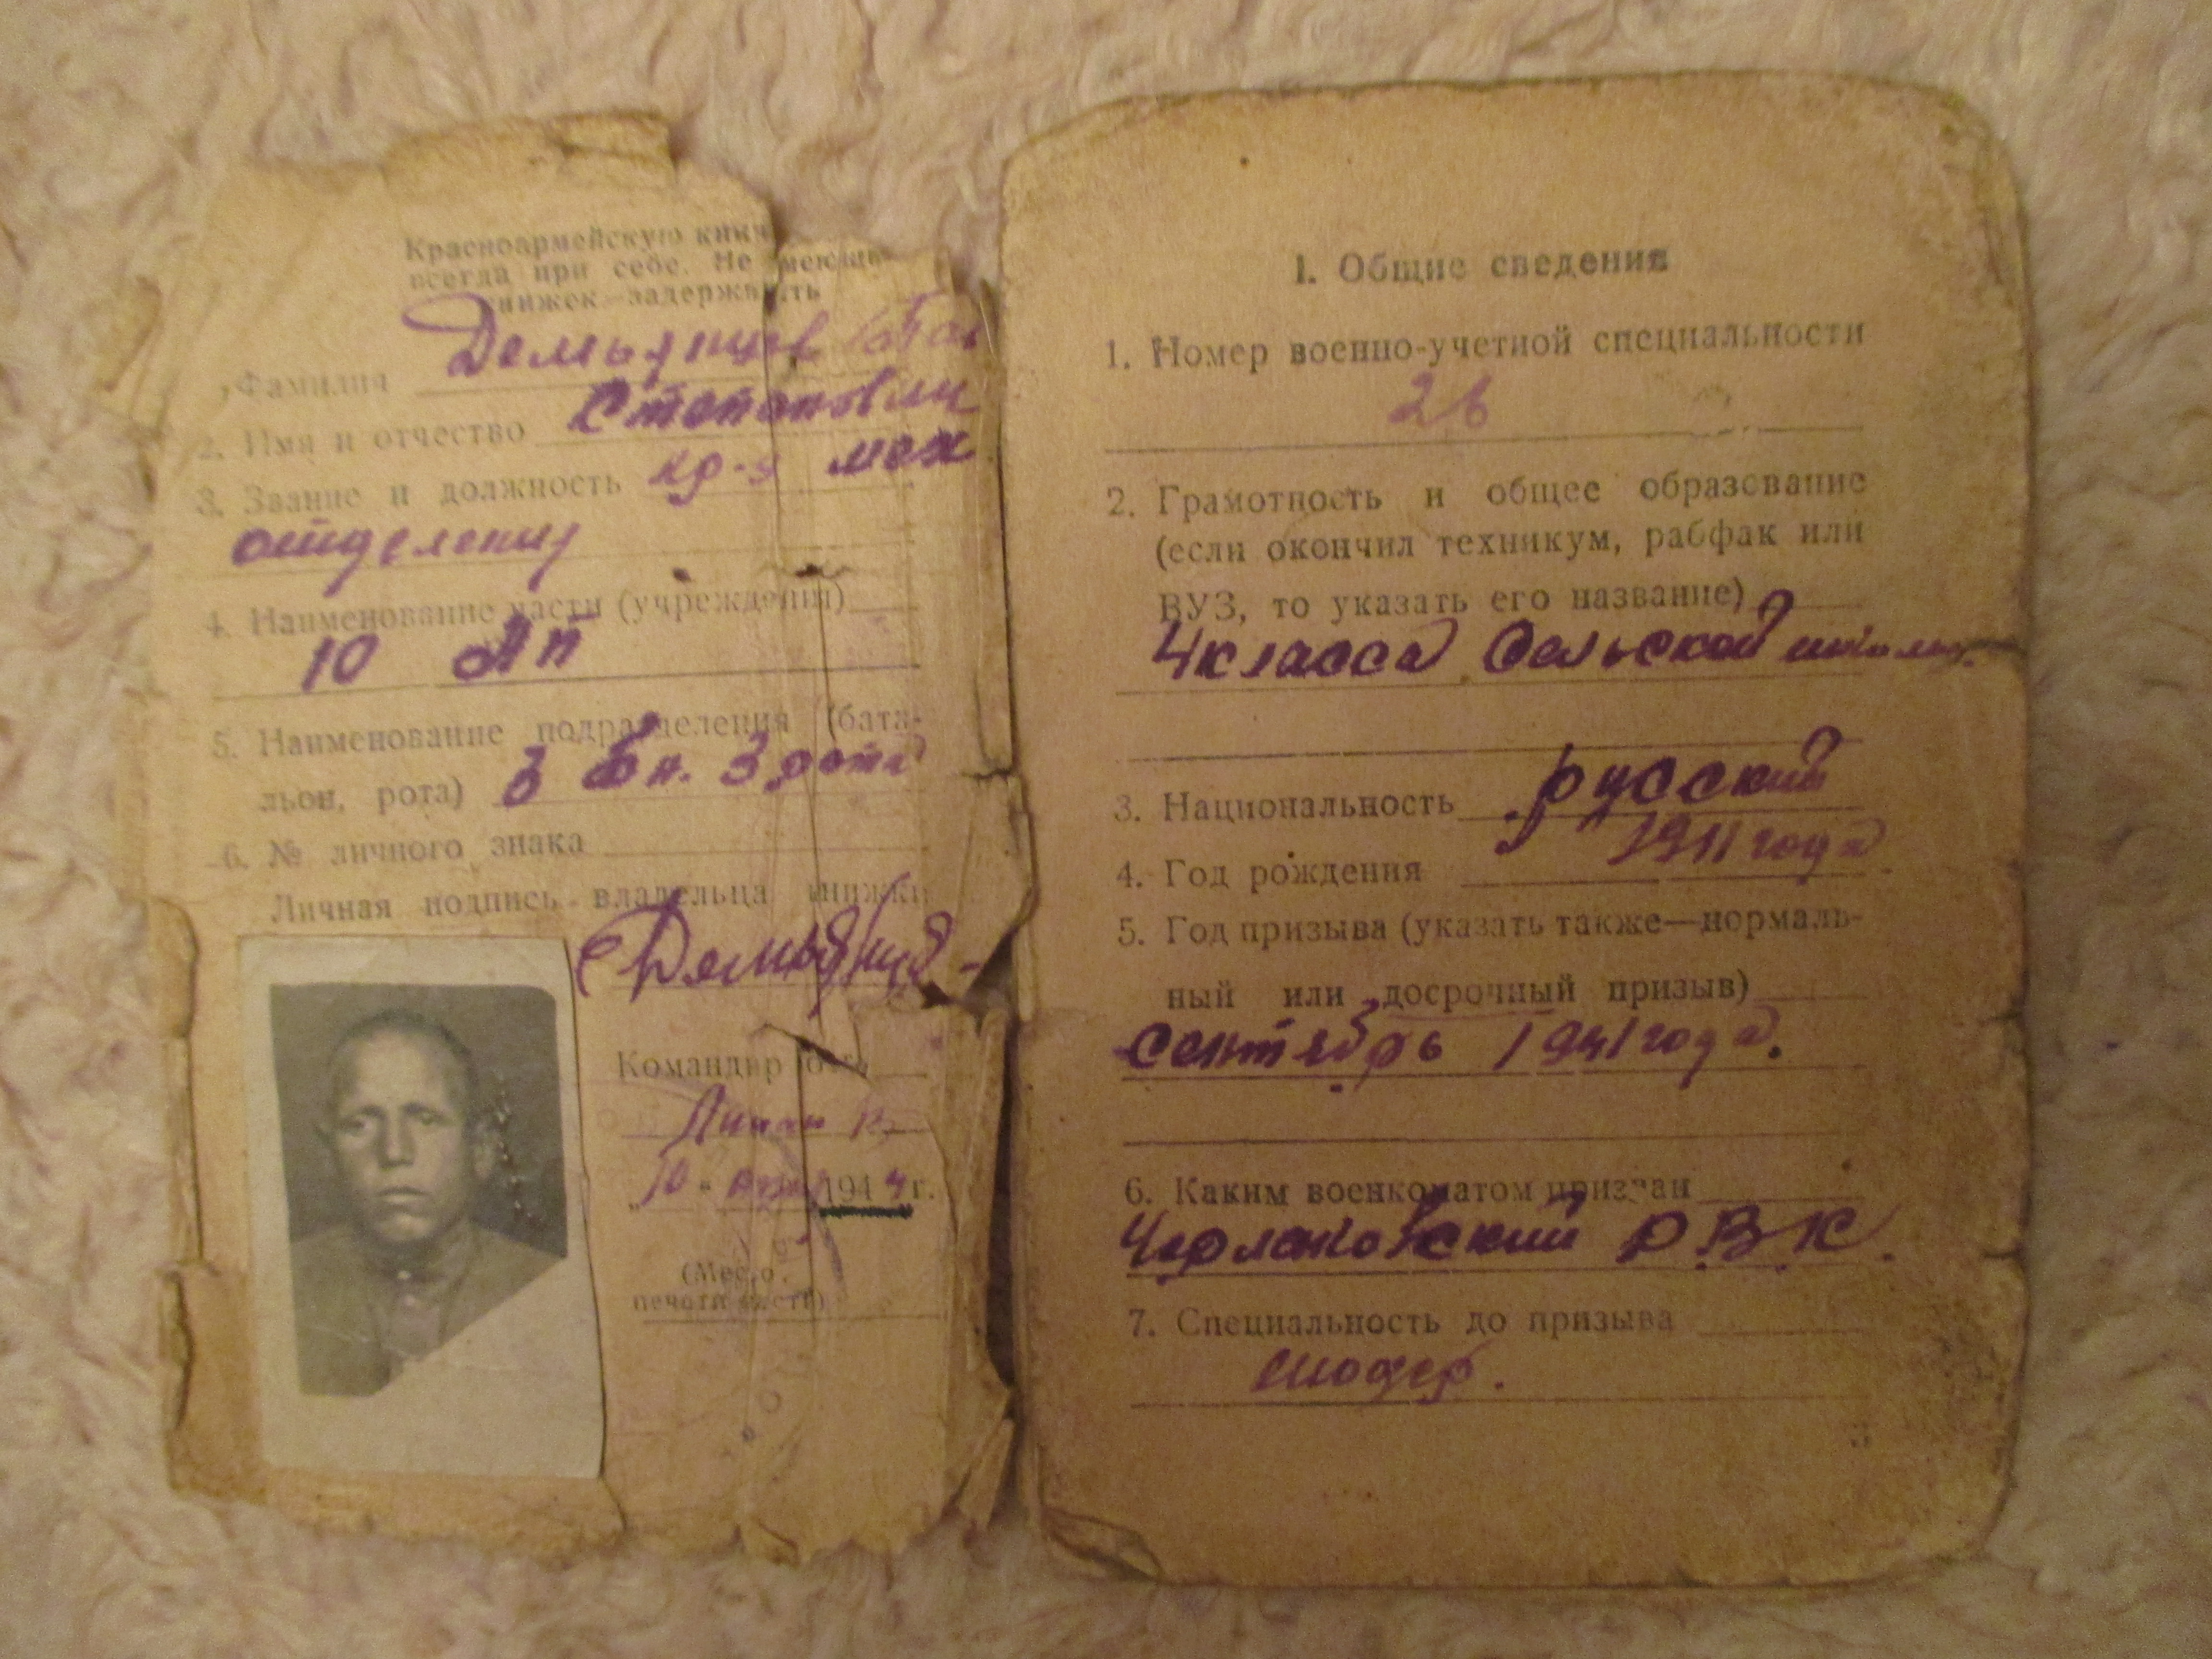 Красноармейскую книж
всегда при себе. Не имеющих
книжек—задержать
Фамилия Демьянцев
2. Имя и отчество Степанович
3. Звание и должность кр-ц
отделения
4. Наименование части (учреждения)
10 АП
5. Наименование подразделения (баталь-
льон, рота) 3 Бн. 3 рота
6. № личного знака
Личная подпись владельца книжки
Командир роты
„10" 1944 г.
(Место
печати части)
I. Общие сведения
1. Номер военно-учетной специальности
26
2. Грамотность и общее образование
(если окончил техникум, рабфак или
ВУЗ, то указать его название)
4 класса сельской школы.
3. Национальность русский
4. Год рождения 1911 года
5. Год призыва (указать также—нормаль-
ный или досрочный призыв)
сентябрь 1941 года.
6. Каким военкоматом призван
Черлакский РВК.
7. Специальность до призыва